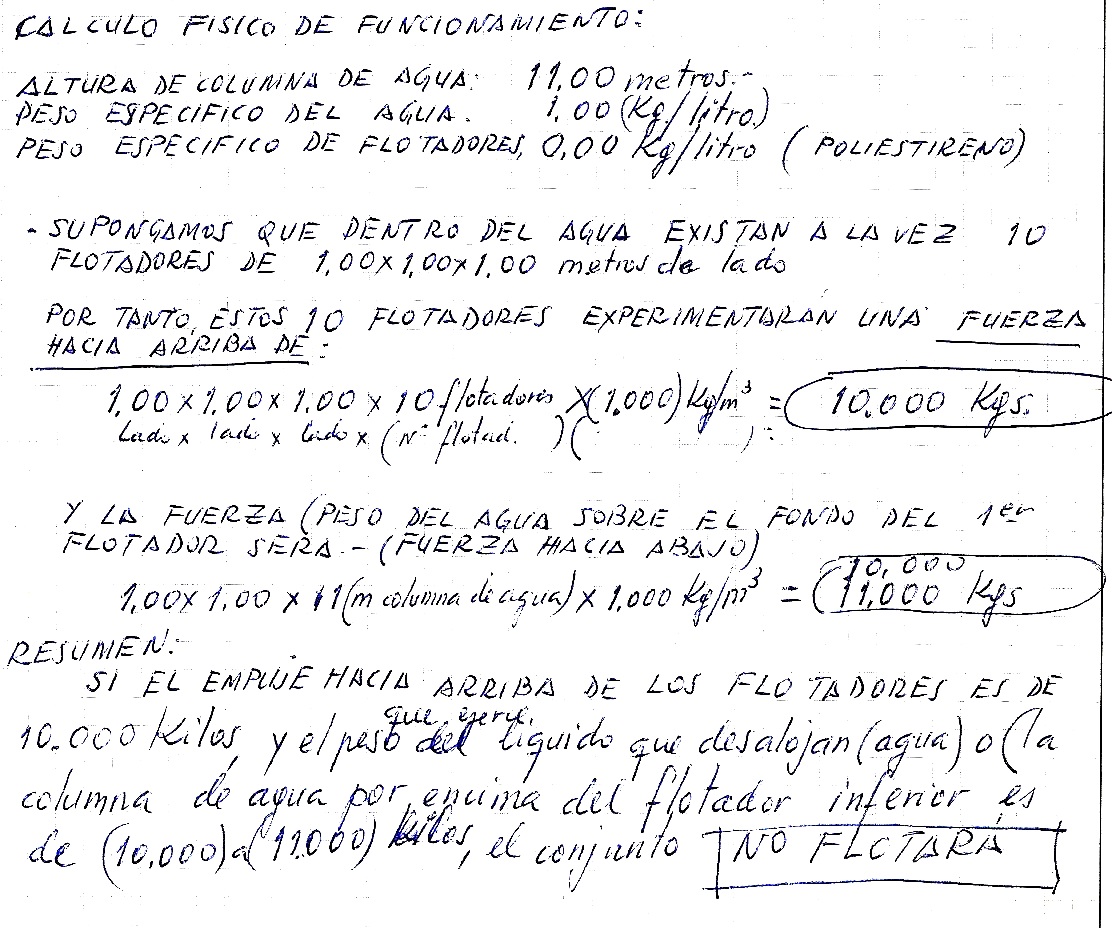 CALCULO FISICO DE FUNCIONAMIENTO:
ALTURA DE COLUMNA DE AGUA: 11,00 metros.-
PESO ESPECIFICO DEL AGUA. 1,00 (Kg/litro)
PESO ESPECIFICO DE FLOTADORES, 0,00 Kg/litro (POLIESTIRENO)
- SUPONGAMOS QUE DENTRO DEL AGUA EXISTAN A LA VEZ 10
FLOTADORES DE 1,00x1,00x1,00 metros de lado
POR TANTO, ESTOS 10 FLOTADORES EXPERIMENTARAN UNA FUERZA
HACIA ARRIBA DE:
1,00 x 1,00 x 1,00 x 10 flotadores x (1.000) Kg/m³ = 10.000 Kgs.
Lado x lado x lado x (Nº flotad. ) ( ) :
Y LA FUERZA (PESO DEL AGUA SOBRE EL FONDO DEL 1er
FLOTADOR SERA.- (FUERZA HACIA ABAJO)
10,000
1,00 x 1,00 x 11 (m columna de agua) x 1.000 Kg/m³ = 11,000 Kgs
RESUMEN:-
SI EL EMPUJE HACIA ARRIBA DE LOS FLOTADORES ES DE
10.000 Kilos, y el peso del liquido que desalojan (agua) o (la
columna de agua por encima del flotador inferior es
de (10,000) a (11.000) Kilos, el conjunto NO FLOTARA